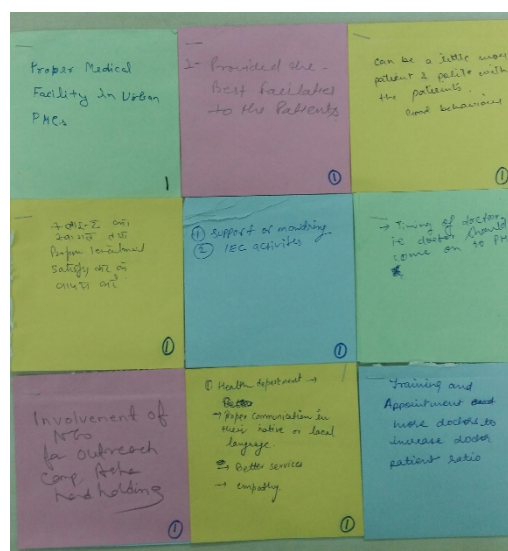 Proper Medical
Facility in Urban
PHCs
1
2- Provided the
Best Facilates
to the Patients
1
can be a little more
patient & polite with
the patients.
Good behaviour
1
Proper
satisfy
1
1 support or
2 IEC activites
1
→ Timing of doctors
ie doctor should
come on
Involvement of
NGO
for outreach
Camp, Asha
hand holding
1
1 Health department →
→ Proper communication in
their native or local
language
→ Better services
→ empathy
1
Training and
Appointment
more doctors to
increase doctor
patient ratio